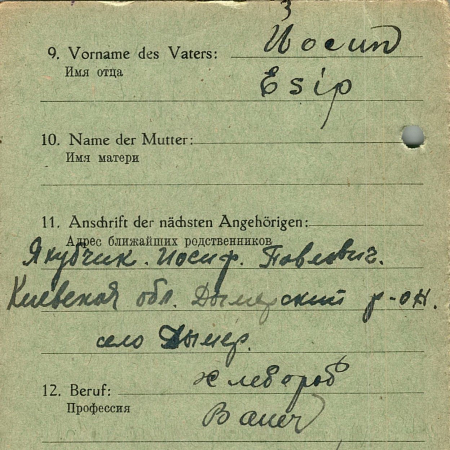 3
9. Vorname des Vaters: Йосип
Имя отца
Esip
10. Name der Mutter:
Имя матери
11. Anschrift der nächsten Angehörigen:
Адрес ближайших родственников
Якубчик. Иосиф. Павлович.
Киевская обл. Дымерский р-он.
село Дымер.
12. Beruf: хлебороб
Профессия
Bauer